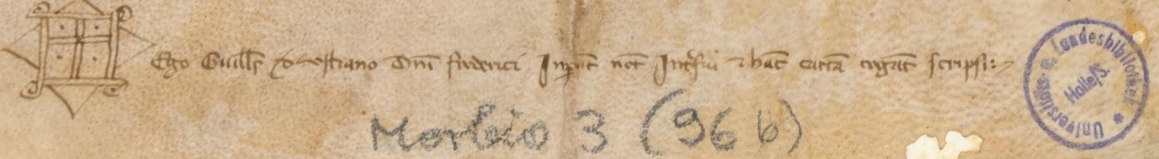 Ego Guills Dni frederici Impat not Int̄fui hac carta rogat scripsi
Morbio 3 (96 b)
Universitäts- u. Landesbibliothek
Halle/S